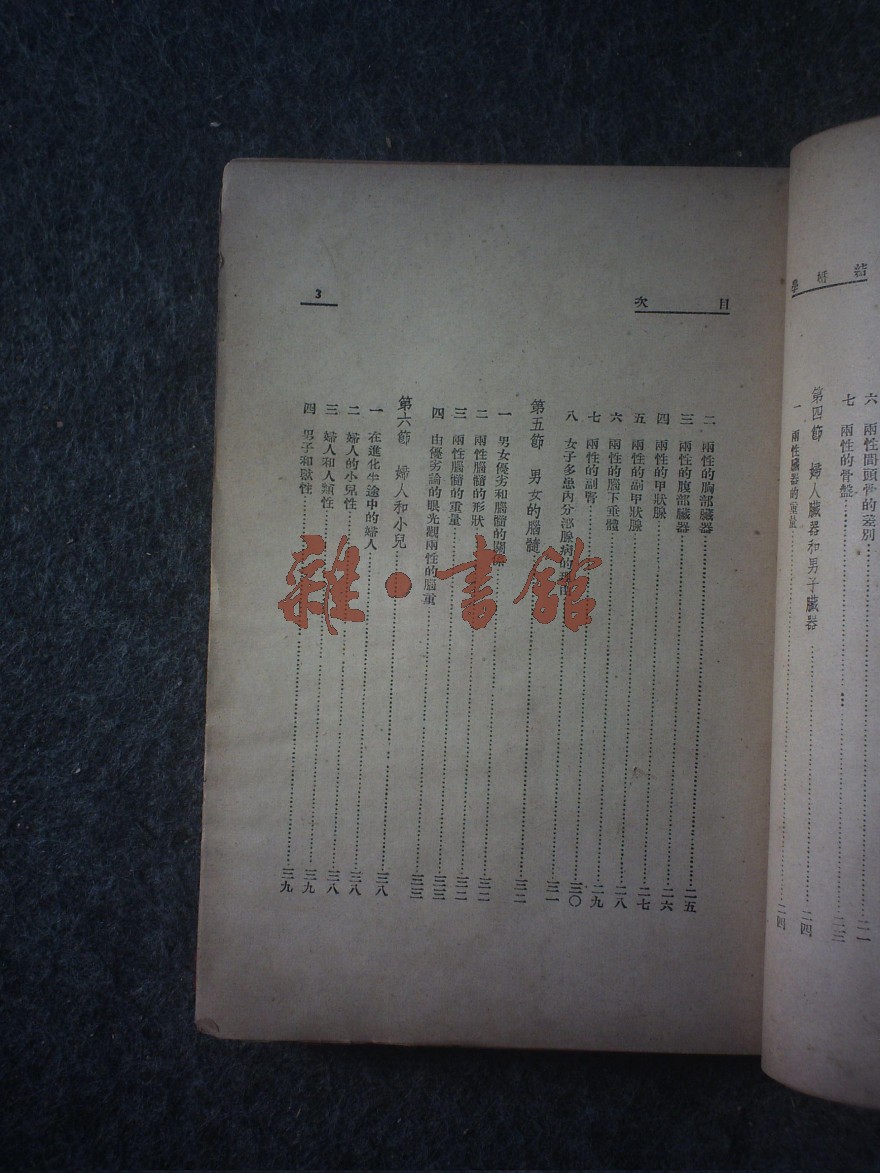 結婚學
六 兩性間頭骨的差別……二一
七 兩性的骨盤……二三
第四節 婦人臟器和男子臟器……二四
一 兩性臟器的重量……二四
目次
3
二 兩性的胸部臟器……二五
三 兩性的腹部臟器……二六
四 兩性的甲狀腺……二七
五 兩性的副甲狀腺……二八
六 兩性的腦下垂體……二九
七 兩性的副腎……三〇
八 女子多患內分泌腺病的理由……三一
第五節 男女的腦髓……三二
一 男女優劣和腦髓的關係……三二
二 兩性腦髓的形狀……三二
三 兩性腦髓的重量……三三
四 由優劣論的眼光觀兩性的腦重……三三
第六節 婦人和小兒……三八
一 在進化中途中的婦人……三八
二 婦人的小兒性……三八
三 婦人和人類性……三九
四 男子和獸性……三九
雜·書館